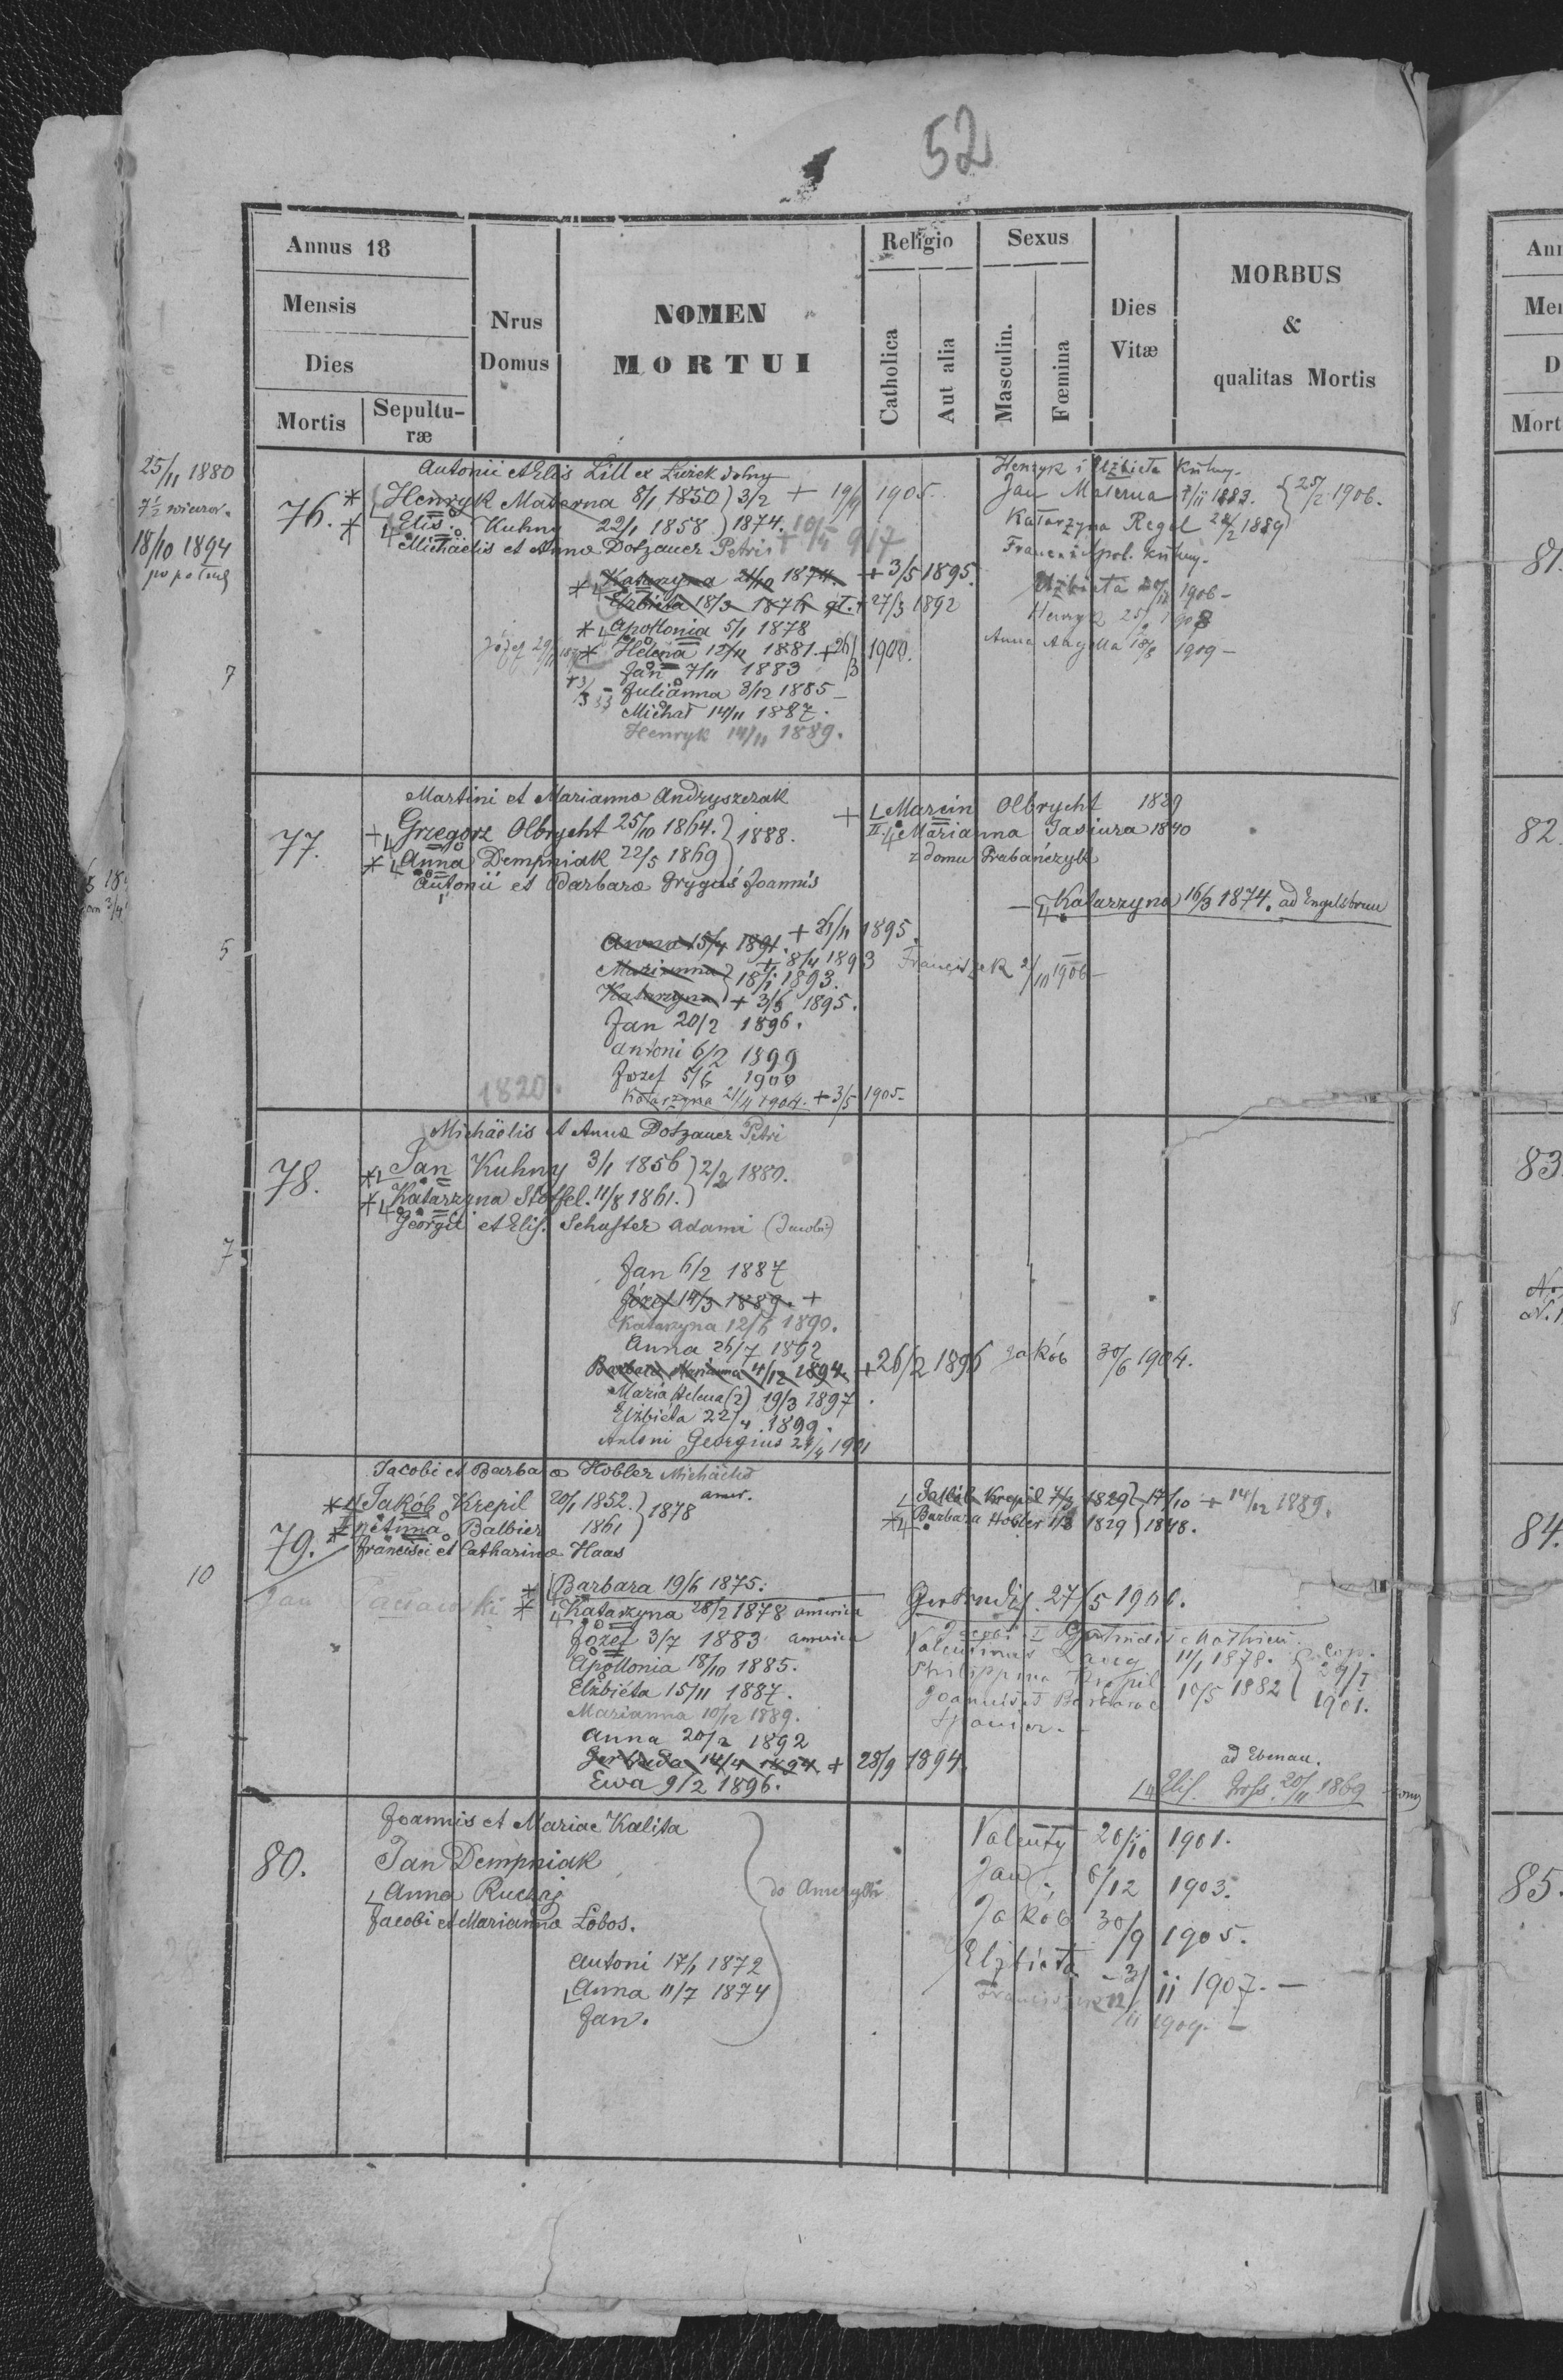 52
Annus 18
Mensis
Dies
Mortis
Sepultu-
ræ
Nrus
Domus
NOMEN
MORTUI
Religio
Catholica
Aut alia
Sexus
Masculin.
Fœmina
Dies
Vitæ
MORBUS
&
qualitas Mortis
25/11 1880
7½
18/10 1894
76.
Antonii et Elis Lill ex Liżek dolny
Henryk Materna 8/1 1850 } 3/2 + 19/9 1905.
Elis. Kuhny 22/1 1858 } 1874. 10/5 917
Michäelis et Anna Dotzauer Petri
Katarzyna 21/10 1874. + 3/5 1895.
Elżbieta 18/3 1876 gT. + 27/3 1892
Apollonia 5/1 1878
Józef 29/11
Helena 12/11 1881. + 26/3 1900.
Jan 7/11 1883
Julianna 3/12 1885
Michał 14/11 1887.
Henryk 14/11 1889.
Henryk i Elżbieta Kuhny
Jan Materna 7/11 1883. } 25/2 1906.
Katarzyna Regel 28/2 1889
Elżbieta 1906
Henryk 25/ 1908
Anna Angella 18/8 1909
7
77.
Martini et Marianna Andryszczak
Grzegorz Olbrycht 25/10 1864. } 1888.
Anna Dempniak 22/5 1869
Antonii et Barbara Gryguś Joannis
Anna 15/4 1891. + 21/11 1895.
Marianna } + 8/4 1893
18/1 1893.
Katarzyna + 3/5 1895.
Jan 20/2 1896.
Antoni 6/2 1899
Jozef 5/6 1900
Katarzyna 21/4 1904. + 3/5 1905.
1820.
Marcin Olbrycht 1829
II Marianna Jasiura 1840
z domu Prabańczyk
Katarzyna 16/3 1874. ad Engelsbrun
Franciszek 2/10 1906
5
78.
Michäelis et Anna Dotzauer Petri
Jan Kuhny 3/1 1856 } 2/2 1880.
Katarzyna Stoffel. 11/8 1861.
Georgii et Elis. Schuster Adami (Jacobi)
Jan 6/2 1887
Józef 14/3 1889. +
Katarzyna 12/6 1890.
Anna 26/7 1892
Barbara Marianna 4/12 1894. + 26/2 1896
Maria Helena (2) 19/3 1897.
Elżbieta 22/4 1899.
Antoni Georgius 24/4 1901
Jakób 30/6 1904.
7
79.
Jacobi et Barbara Hobler Michäelis
Jakób Krepil 20/1 1852. } 1878 amer.
Anna Balbier 1861
Francisci et Catharina Haas
Jan
Barbara 19/6 1875.
Katarzyna 28/2 1878 america
Józef 3/7 1883 america
Apollonia 18/10 1885.
Elżbieta 15/11 1887.
Marianna 10/12 1889.
Anna 20/2 1892
Gertruda 14/4 1894 + 28/9 1894.
Ewa 9/2 1896.
Jakób Krepil 7/3 1829 } 17/10 + 14/12 1889.
Barbara Hobler 1/3 1829 } 1848.
Gertrudis. 27/5 1906.
Valentinus Lang 11/1 1878. } cop.
Philippina Krepil 10/5 1882 } 29/I
Joannis et Barbarae 1901.
Spanier.
ad Ebenau.
Elis. Gross. 20/11 1869
10
80.
Joannis et Mariae Kalita
Jan Dempniak
Anna Ruchaj
Jacobi et Marianna Lobos.
Antoni 17/1 1872
Anna 11/7 1874
Jan.
do Ameryki
Valenty 20/10 1901.
Jan 6/12 1903.
Jakób 30/9 1905.
Elżbieta 3/11 1907.
Franciszek 12/11 1909.
81.
82.
83
84.
85.